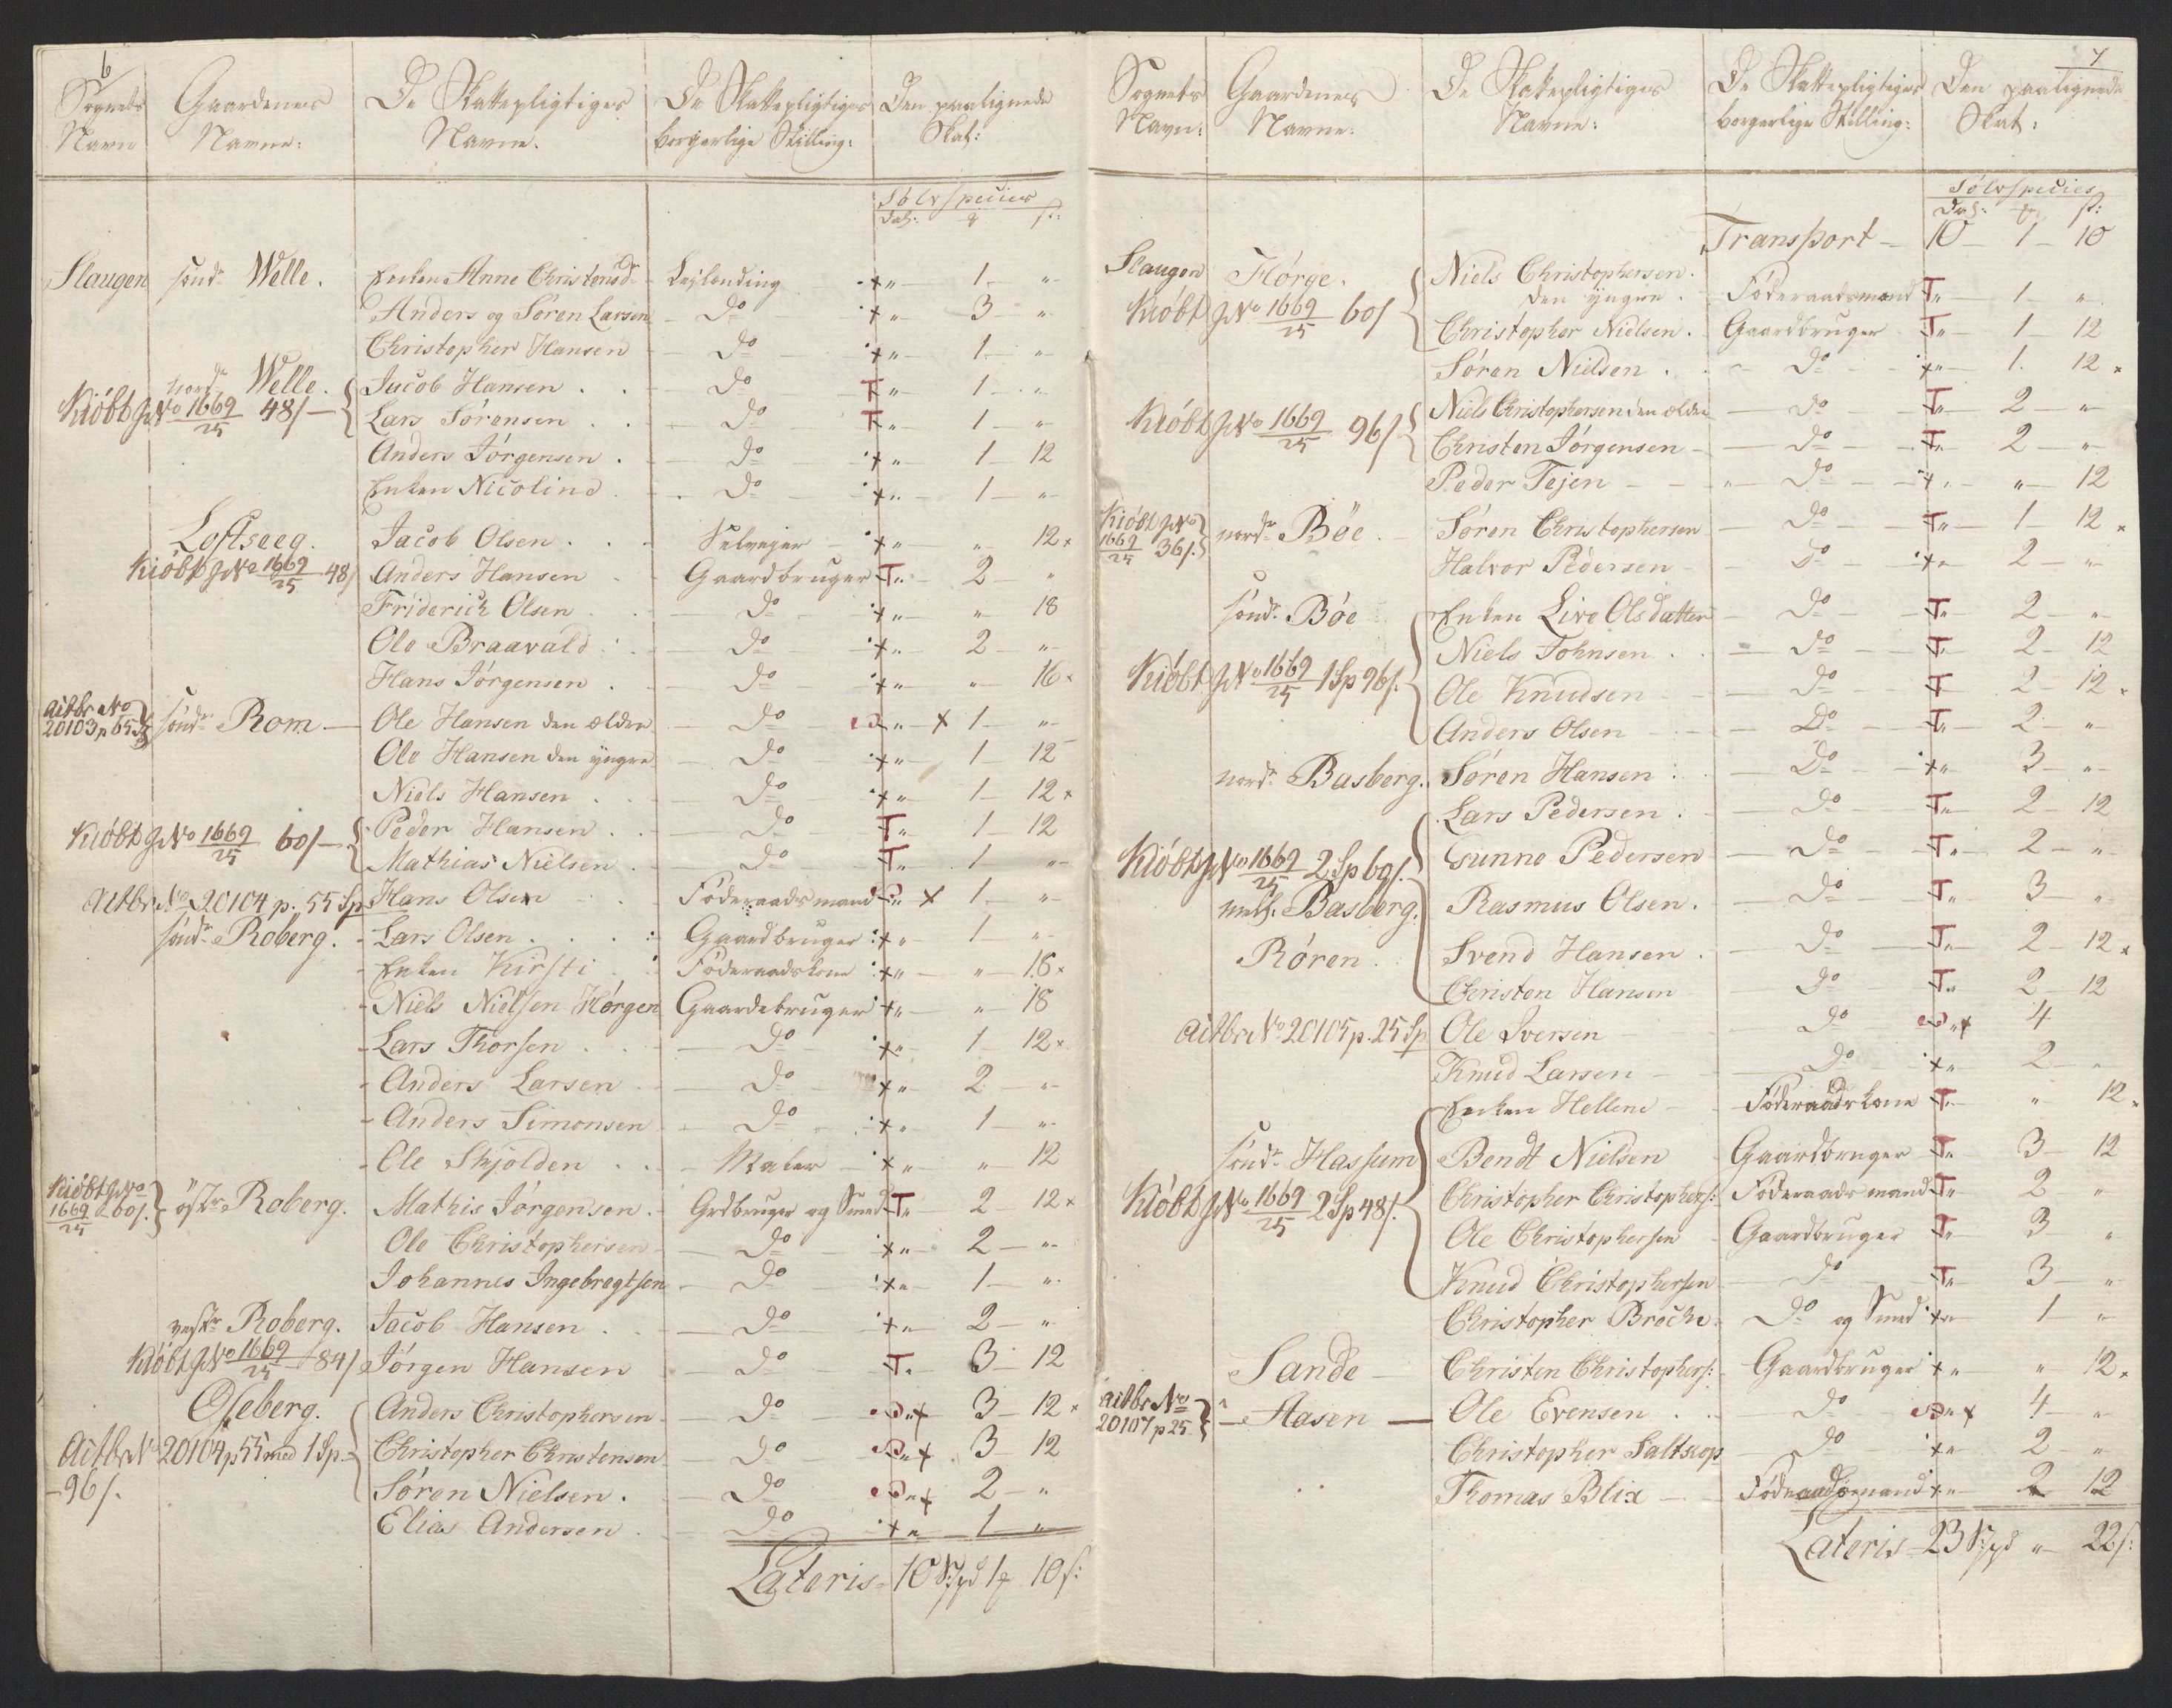 6
Sognets Navn | Gaardenes Navne: | De Skattepligtiges Navne. | De Skattepligtiges borgerlige Stilling: | Den paalignede Skat:
Sölvspecies
Dal: | ß:
Slaugen | sönd: Welle. | Enken Anne Christensd: | Leylending | " 1 "
Anders og Sören Larsen | Do | " 3 "
Christopher Hansen | Do | " 1 "
nord: Welle. | Jacob Hansen | Do | T " 1 "
Kiöbt J No 1669/25 48/ | Lars Sörensen | Do | T " 1 "
Anders Jörgensen | Do | " 1 12
Enken Nicoline | Do | " 1 "
Loftseeg. | Jacob Olsen | Selvejer | " " 12 x
Kiöbt J No 1669/25 48/ | Anders Hansen | Gaardbruger | T " 2 "
Friderich Olsen | Do | " " 18
Ole Braavald | Do | " 2 "
Hans Jörgensen | Do | " " 16 x
Aitbr No 20103 p 65 Sp | sönd: Rom | Ole Hansen den ælder | Do | " x 1 "
Ole Hansen den yngre | Do | " 1 12
Niels Hansen | Do | " 1 12 x
Kiöbt J No 1669/25 60/ | Peder Hansen | Do | T " 1 12
Mathias Nielsen | Do | T " 1 "
Aitbr No 20104 p. 55 Sp | Hans Olsen | Föderaadsmand | " x 1 "
sönd: Roberg. | Lars Olsen | Gaardbruger | " 1 "
Enken Kirsti | Föderaadskone | " " 18 x
Niels Nielsen Hörgen | Gaardebruger | " " 18
Lars Thorsen | Do | " 1 12 x
Anders Larsen | Do | " 2 "
Anders Simonsen | Do | " 1 "
Ole Skjolden | Maler | " " 12
Kiöbt J No 1669/25 60/. | östr Roberg. | Mathis Jörgensen | Grdbruger og Smed | T " 2 12 x
Ole Christophersen | Do | " 2 "
Johannes Ingebregtsen | Do | " 1 "
vestr Roberg. | Jacob Hansen | Do | " 2 "
Kiöbt J No 1669/25 84/ | Jörgen Hansen | Do | T " 3 12
Oseberg. | Anders Christophersen | Do | " x 3 12 x
Aitbr No 20104 p 55 med 1 Sp | Christopher Christensen | Do | " x 3 12
96/. | Sören Nielsen | Do | " x 2 "
Elias Andersen | Do | " 1 "
Lateris 10 Spd 1 10 ß:
7
Sognets Navn: | Gaardenes Navne: | De Skattepligtiges Navne: | De Skattepligtiges borgerlige Stilling: | Den paalignede Skat:
Sölvspecies
Dal: | ß:
Transport 10 1 10
Slaugen | Hörge. | Niels Christophersen
den yngre | Föderaadsmand | T " 1 "
Kiöbt J No 1669/25 60/ | Christopher Nielsen. | Gaardbruger | T " 1 12
Sören Nielsen | Do | " 1 12 x
Kiöbt J No 1669/25 96/ | Niels Christophersen den ælder | Do | T " 2 "
Christen Jörgensen | Do | T " 2 "
Peder Tejen | Do | " " 12
Kiöbt J No 1669/25 36/. | nord: Böe | Sören Christophersen | Do | T " 1 12 x
Halvor Pedersen | Do | " 2 "
sönd: Böe | Enken Live Olsdatter | Do | T " 2 "
Niels Johnsen | Do | T " 2 12
Kiöbt J No 1669/25 1 Sp 96/. | Ole Knudsen | Do | T " 2 12 x
Anders Olsen | Do | T " 2 "
nord: Basberg. | Sören Hansen | Do | " 3 "
Lars Pedersen | Do | T " 2 12
Kiöbt J No 1669/25 2 Sp 69/. | Gunne Pedersen | Do | T " 2 "
mels: Basberg. | Rasmus Olsen. | Do | T " 3 "
Rören | Svend Hansen | Do | T " 2 12 x
Christen Hansen | Do | T " 2 12
Aitbr No 20105 p. 25 Sp | Ole Iversen | Do | " x 4
Knud Larsen | Do | " 2 "
Enken Hellene | Föderaadskone | T " " 12 x
sönd: Hassum | Bendt Nielsen | Gaardbruger | T " 3 12
Kiöbt J No 1669/25 2 Sp 48/. | Christopher Christophers: | Föderaadsmand | T " 2 "
Ole Christophersen | Gaardbruger | T " 3 "
Knud Christophersen | Do | T " 3 "
Christopher Broche | Do og Smed | " 1 "
Sande | Christen Christophers: | Gaardbruger | " " 12 x
Aitbr No 20107 p 25 | Aasen | Ole Evensen | Do | " x 4 "
Christopher Saltsop | Do | " 2 "
Thomas Blix | Föderaadsmand | " 2 12
Lateris 23 Spd " 22 ß: